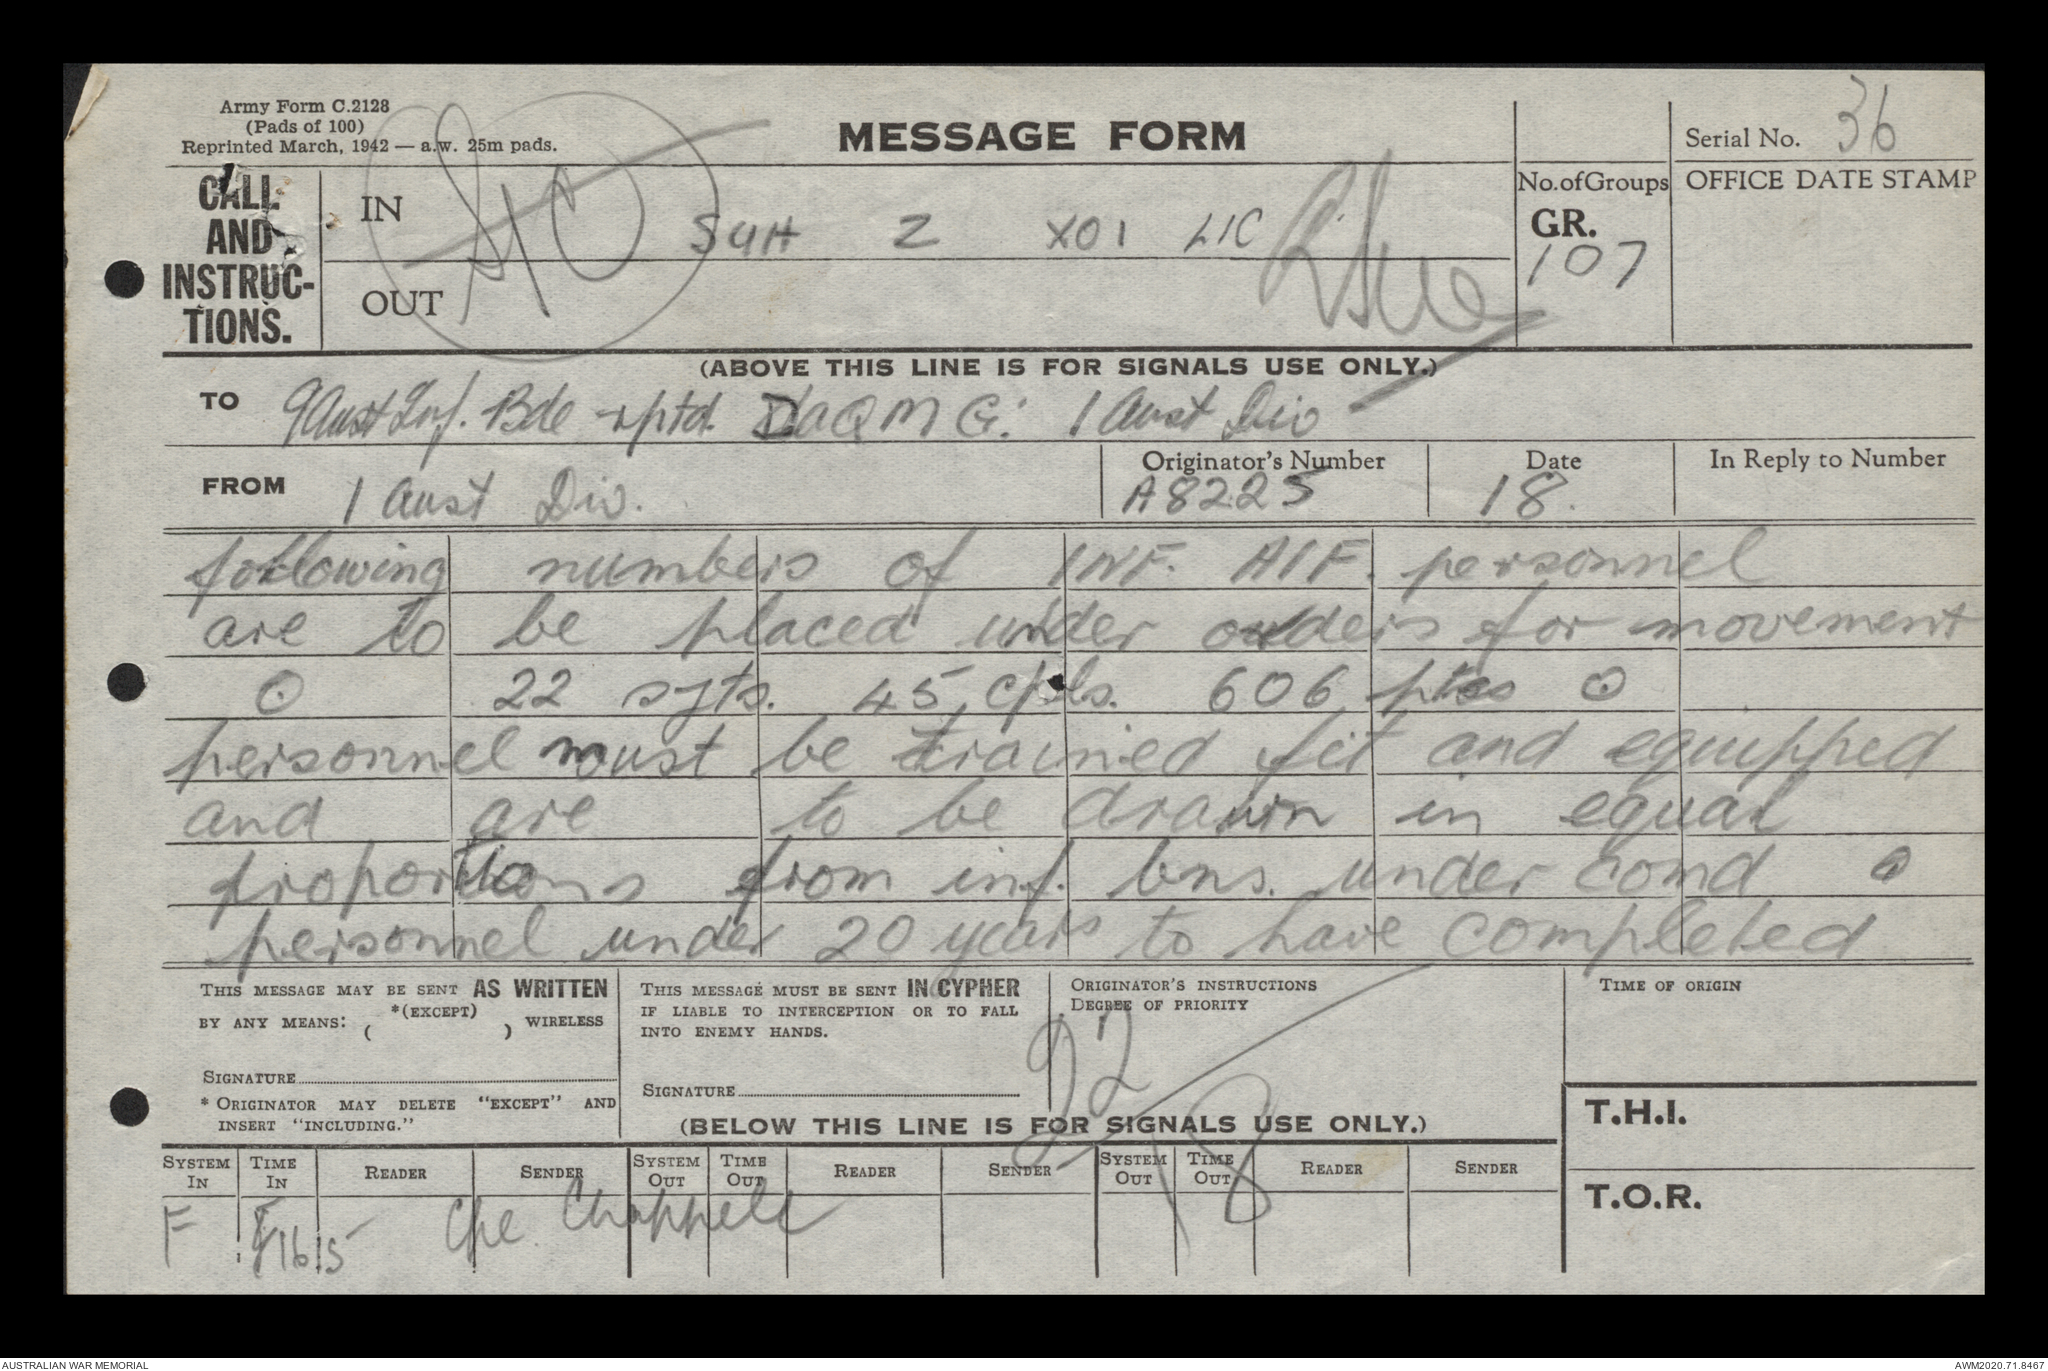 Army Form C.2128
(Pads of 100)
Reprinted March, 1942 — a.w. 25m pads.
MESSAGE FORM
Serial No. 36
CALL AND INSTRUC-TIONS.
IN
SUH Z XO1 LIC
OUT
No. of Groups
GR.
107
OFFICE DATE STAMP
(ABOVE THIS LINE IS FOR SIGNALS USE ONLY.)
TO 9 Aust Inf. Bde rptd. DAQMG. 1 Aust Div
FROM 1 Aust Div.
Originator's Number
A8225
Date
18.
In Reply to Number
following numbers of INF. AIF. personnel
are to be placed under orders for movement
O 22 sgts. 45 cpls. 606 ptes O
personnel must be trained fit and equipped
and are to be drawn in equal
proportions from inf. bns. under comd O
personnel under 20 years to have completed
THIS MESSAGE MAY BE SENT AS WRITTEN
BY ANY MEANS: *(EXCEPT) ( ) WIRELESS
SIGNATURE
* ORIGINATOR MAY DELETE "EXCEPT" AND
INSERT "INCLUDING."
THIS MESSAGE MUST BE SENT IN CYPHER
IF LIABLE TO INTERCEPTION OR TO FALL
INTO ENEMY HANDS.
SIGNATURE
ORIGINATOR'S INSTRUCTIONS
DEGREE OF PRIORITY
TIME OF ORIGIN
92
18
(BELOW THIS LINE IS FOR SIGNALS USE ONLY.)
T.H.I.
T.O.R.
SYSTEM IN TIME IN READER SENDER SYSTEM OUT TIME OUT READER SENDER SYSTEM OUT TIME OUT READER SENDER
F 1615 Cpl. Chappell
AUSTRALIAN WAR MEMORIAL
AWM2020.71.8467